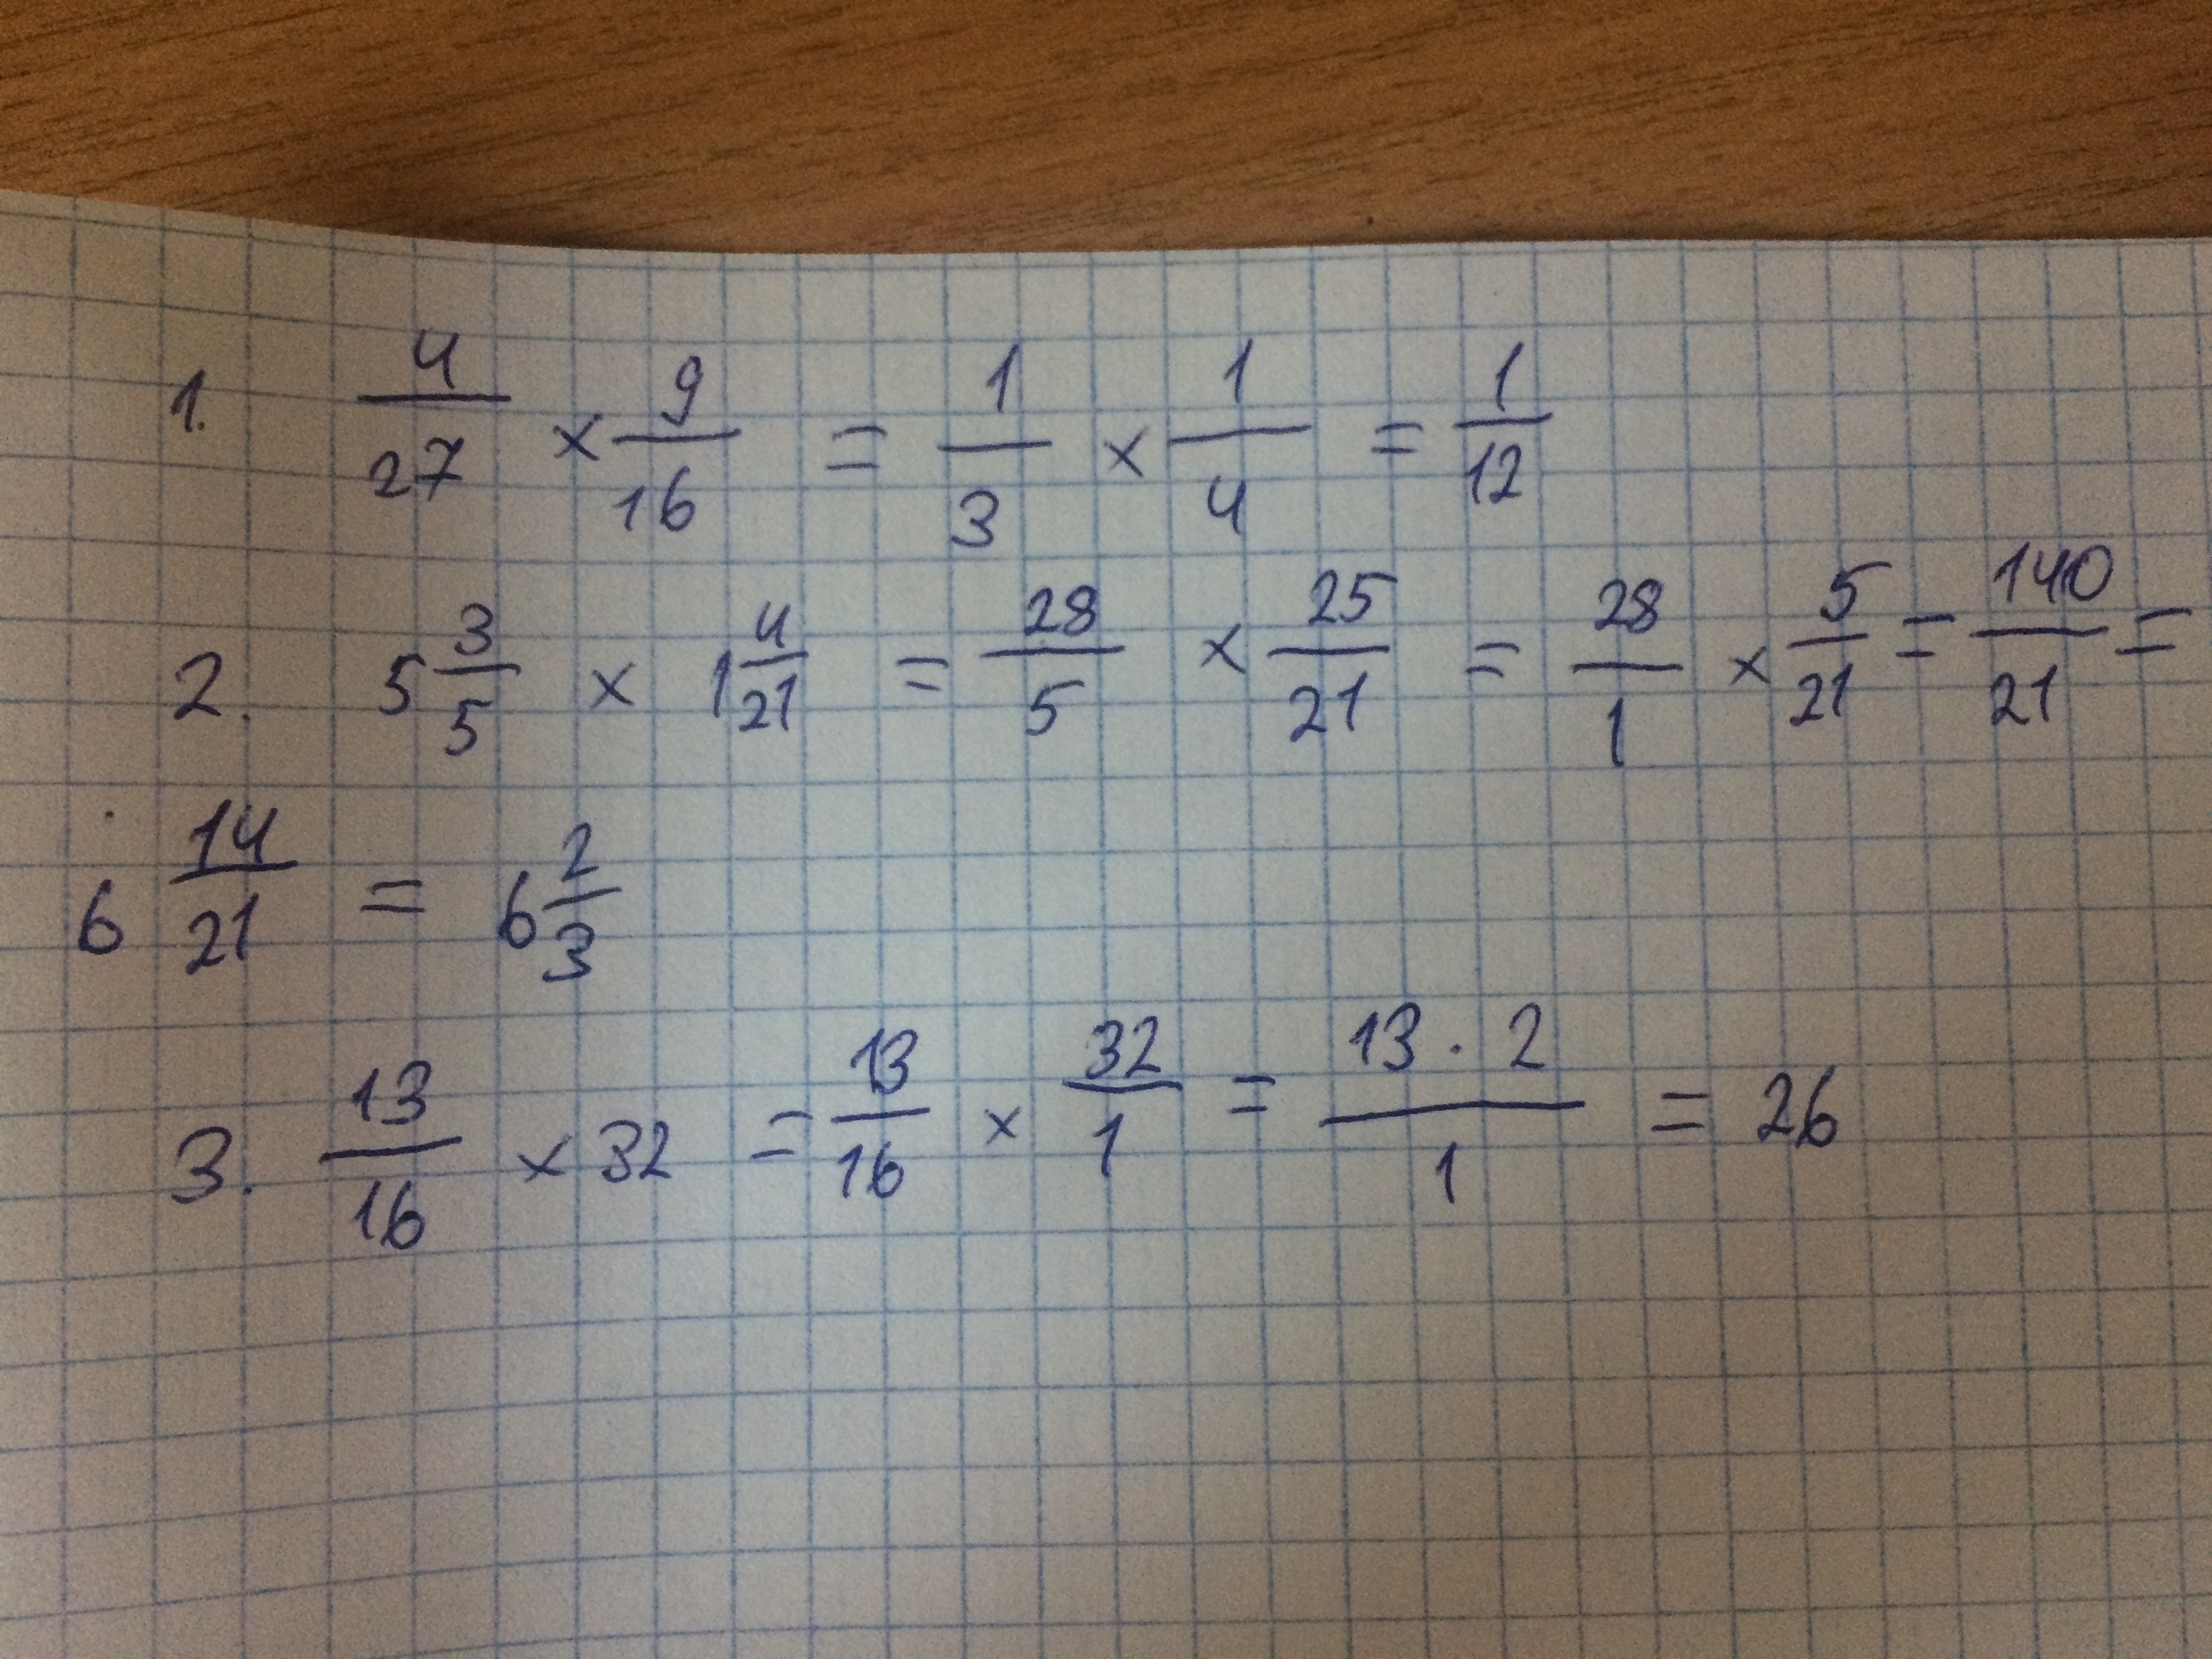 1. 4/27 × 9/16 = 1/3 × 1/4 = 1/12
2. 5 3/5 × 1 4/21 = 28/5 × 25/21 = 28/1 × 5/21 = 140/21 =
6 14/21 = 6 2/3
3. 13/16 × 32 = 13/16 × 32/1 = 13 · 2/1 = 26